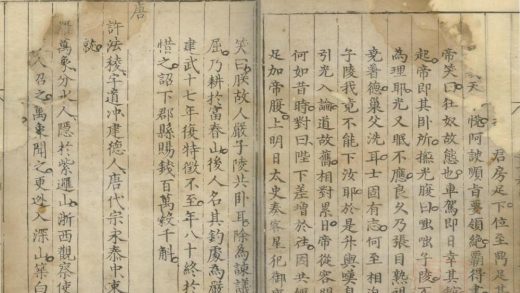 君房足下位至鼎足甚
天 悅阿諛順旨要領絕霸得書
帝笑曰狂奴故態也車駕即日幸其館
起帝即其卧所撫光腹曰咄咄子陵不
為理耶光又眠不應良久乃張目熟視
堯著德巢父洗耳士固有志何至相迫
子陵我竟不能下汝耶於是升輿嘆息
引光入論道故舊相對累日帝從容問
何如昔時對曰陛下差增於往因共卧
足加帝腹上明日太史奏客星犯御座
笑曰朕故人嚴子陵共卧耳除為諫議
屈乃耕於富春山後人名其釣處為嚴
建武十七年復特徵不至年八十終於
惜之詔下郡縣賜錢百萬穀千斛
唐
許法稜字道冲建德人唐代宗永泰中東
羅萬象分水人隱於紫邏山浙西觀察使
人召之萬象聞之更逃入深山築白